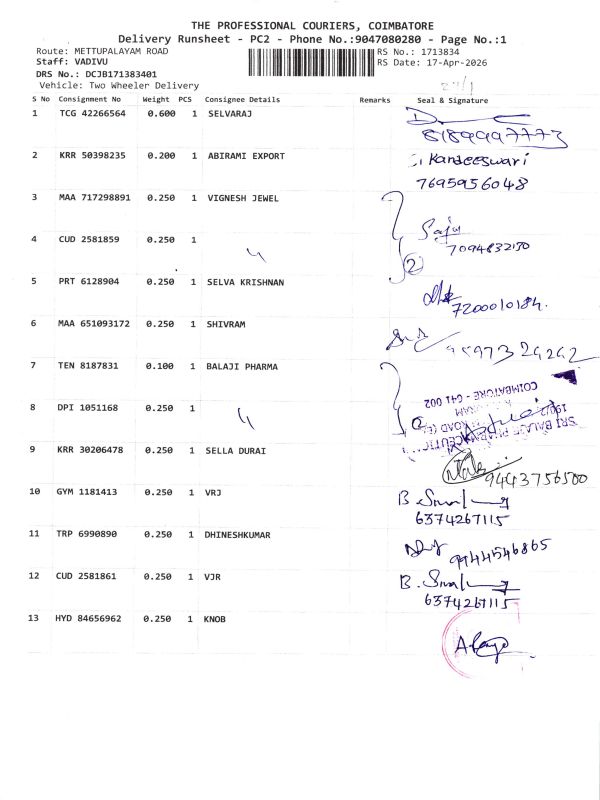 THE PROFESSIONAL COURIERS, COIMBATORE
Delivery Runsheet - PC2 - Phone No.:9047080280 - Page No.:1
Route: METTUPALAYAM ROAD RS No.: 1713834
Staff: VADIVU RS Date: 17-Apr-2026
DRS No.: DCJB171383401
Vehicle: Two Wheeler Delivery
S No Consignment No Weight PCS Consignee Details Remarks Seal & Signature
1 TCG 42266564 0.600 1 SELVARAJ
8189997773
2 KRR 50398235 0.200 1 ABIRAMI EXPORT Kandeeswari
7695956048
3 MAA 717298891 0.250 1 VIGNESH JEWEL
Saju
4 CUD 2581859 0.250 1 7094832150
2
5 PRT 6128904 0.250 1 SELVA KRISHNAN
7200010184.
6 MAA 651093172 0.250 1 SHIVRAM
9597324262
7 TEN 8187831 0.100 1 BALAJI PHARMA
COIMBATORE - 641 002
8 DPI 1051168 0.250 1
SRI BALAJI
9 KRR 30206478 0.250 1 SELLA DURAI
9443756500
10 GYM 1181413 0.250 1 VRJ B.
6374267115
11 TRP 6990890 0.250 1 DHINESHKUMAR
9944546865
12 CUD 2581861 0.250 1 VJR B.
6374267115
13 HYD 84656962 0.250 1 KNOB